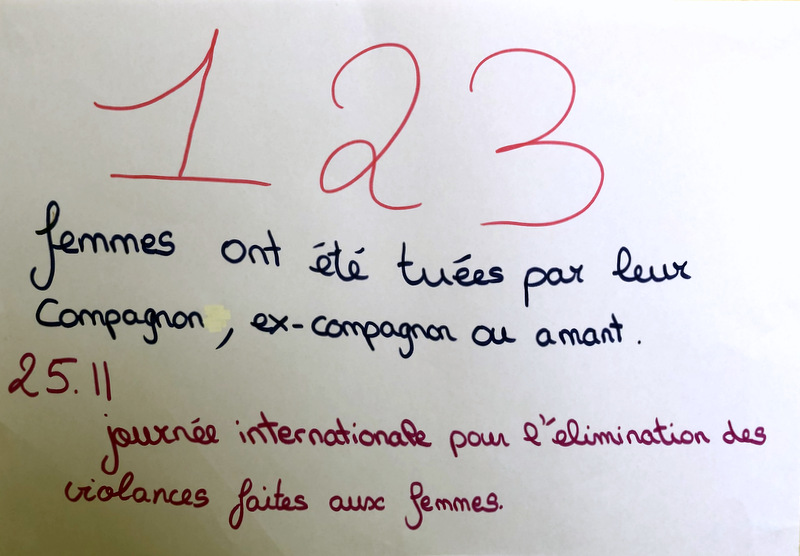 123
femmes ont été tuées par leur
compagnon, ex-compagnon ou amant.
25.11
journée internationale pour l'élimination des
violances faites aux femmes.